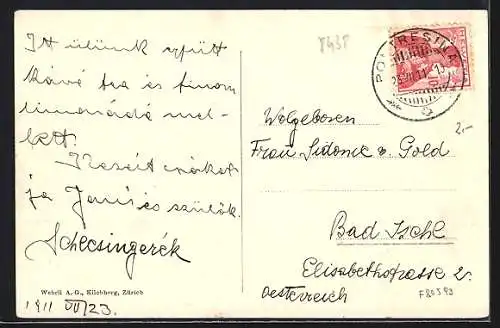 Itt ülünk együtt
kávé tea és finom
limonádé mel-
lett.
Kezeit csókol-
ja Jenő és szülők.
Schlesingerék
Wehrli A.-G., Kilchberg, Zürich
1911 VII/23.
8438
PONTRESINA
HELVETIA
2.-
Wolgeboren
Frau Sidonie v. Gold
Bad Ischl
Elisabethstrasse 2.
Oesterreich